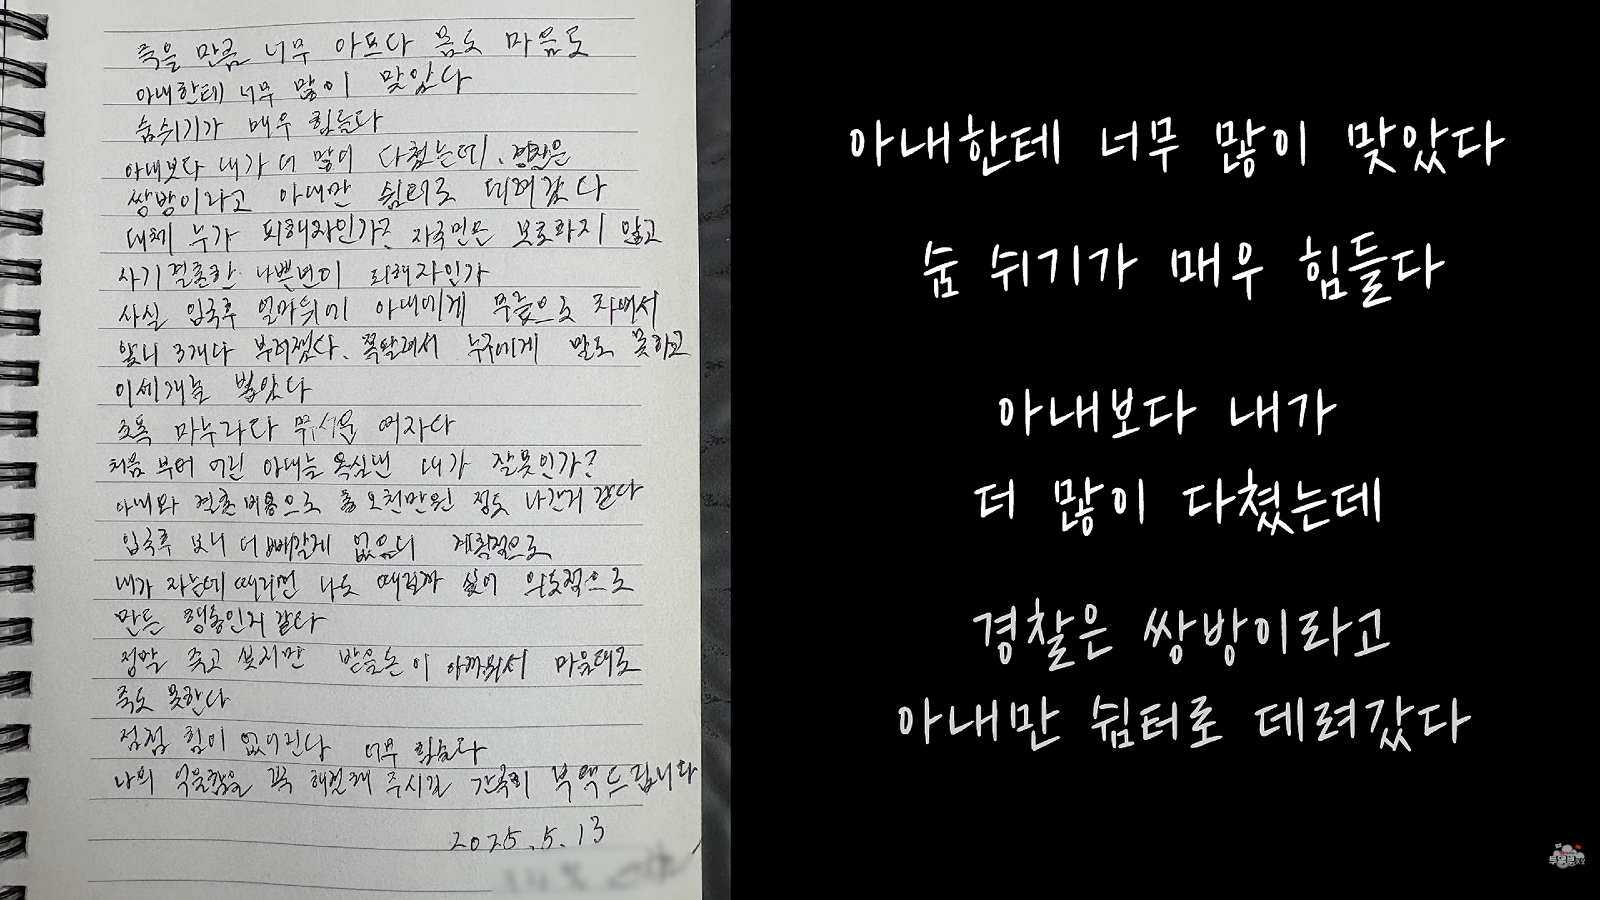 죽을 만큼 너무 아프다 몸도 마음도
아내한테 너무 많이 맞았다
숨쉬기가 매우 힘들다
아내보다 내가 더 많이 다쳤는데, 경찰은
쌍방이라고 아내만 쉼터로 데려갔다
대체 누가 피해자인가? 자국민은 보호하지 않고
사기결혼한 나쁜년이 피해자인가
사실 입국후 얼마뒤에 아내에게 무릎으로 차여서
앞니 3개다 부러졌다. 쪽팔려서 누구에게 말도 못하고
이세개를 뽑았다
조폭 마누라다 무서운 여자다
처음 부터 어린 아내를 욕심낸 내가 잘못인가?
아내와 결혼비용으로 총 오천만원 정도 나간거 같다
입국후 보니 더 빼갈게 없으니 계획적으로
내가 자는데 때리면 나도 때릴까 싶어 의도적으로
만든 행동인거 같다
정말 죽고 싶지만 받을돈이 아까워서 마음대로
죽도 못한다
점점 힘이 없어진다 너무 힘들다
나의 억울함을 꼭 해결해 주시길 간곡히 부탁드립니다
2025.5.13
아내한테 너무 많이 맞았다
숨 쉬기가 매우 힘들다
아내보다 내가
더 많이 다쳤는데
경찰은 쌍방이라고
아내만 쉼터로 데려갔다